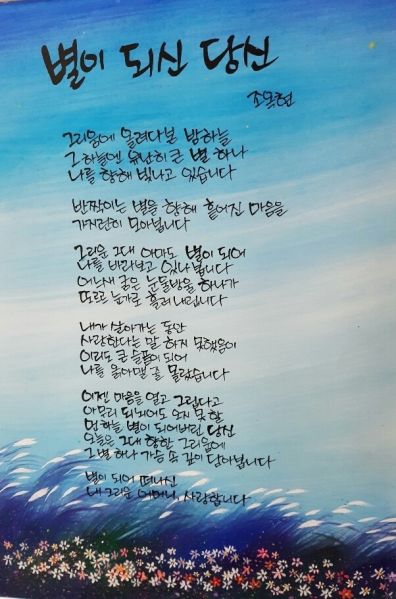 별이 되신 당신
조옥현
그리움에 올려다본 밤하늘
그 하늘엔 유난히 큰 별 하나
나를 향해 빛나고 있습니다
반짝이는 별을 향해 흩어진 마음을
가지런히 모아봅니다
그리운 그대 아마도 별이 되어
나를 바라보고 있나봅니다
어느새 굵은 눈물방울 하나가
또르르 눈가로 흘러내립니다
내가 살아가는 동안
사랑한다는 말 하지 못했음이
이리도 큰 슬픔이 되어
나를 옭아맬 줄 몰랐습니다
이젠 마음을 열고 그립다고
아무리 되뇌어도 오지 못할
먼 하늘 별이 되어버린 당신
오늘은 그대 향한 그리움에
그 별 하나 가슴 속 깊이 담아봅니다
별이 되어 떠나신
내 그리운 어머니, 사랑합니다